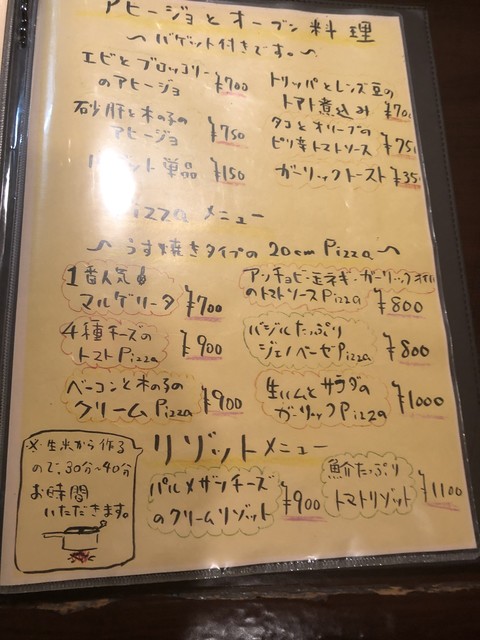 アヒージョとオーブン料理
〜バゲット付きです。〜
エビとブロッコリー
のアヒージョ ¥700
砂肝と木の子の
アヒージョ ¥750
単品 ¥150
トリッパとレンズ豆の
トマト煮込み ¥700
タコとオリーブの
ピリ辛トマトソース ¥75
ガーリックトースト ¥35
Pizza メニュー
〜うす焼きタイプの20cm Pizza〜
1番人気
マルゲリータ ¥700
4種チーズの
トマトPizza ¥900
ベーコンと木の子の
クリームPizza ¥900
アンチョビ・玉ネギ・ガーリック
のトマトソースPizza ¥800
バジルたっぷり
ジェノベーゼPizza ¥800
生ハムとサラダの
ガーリックPizza ¥1000
リゾットメニュー
※生米から作る
ので、30分〜40分
お時間
いただきます。
パルメザンチーズ
のクリームリゾット ¥900
魚介たっぷり
トマトリゾット ¥1100